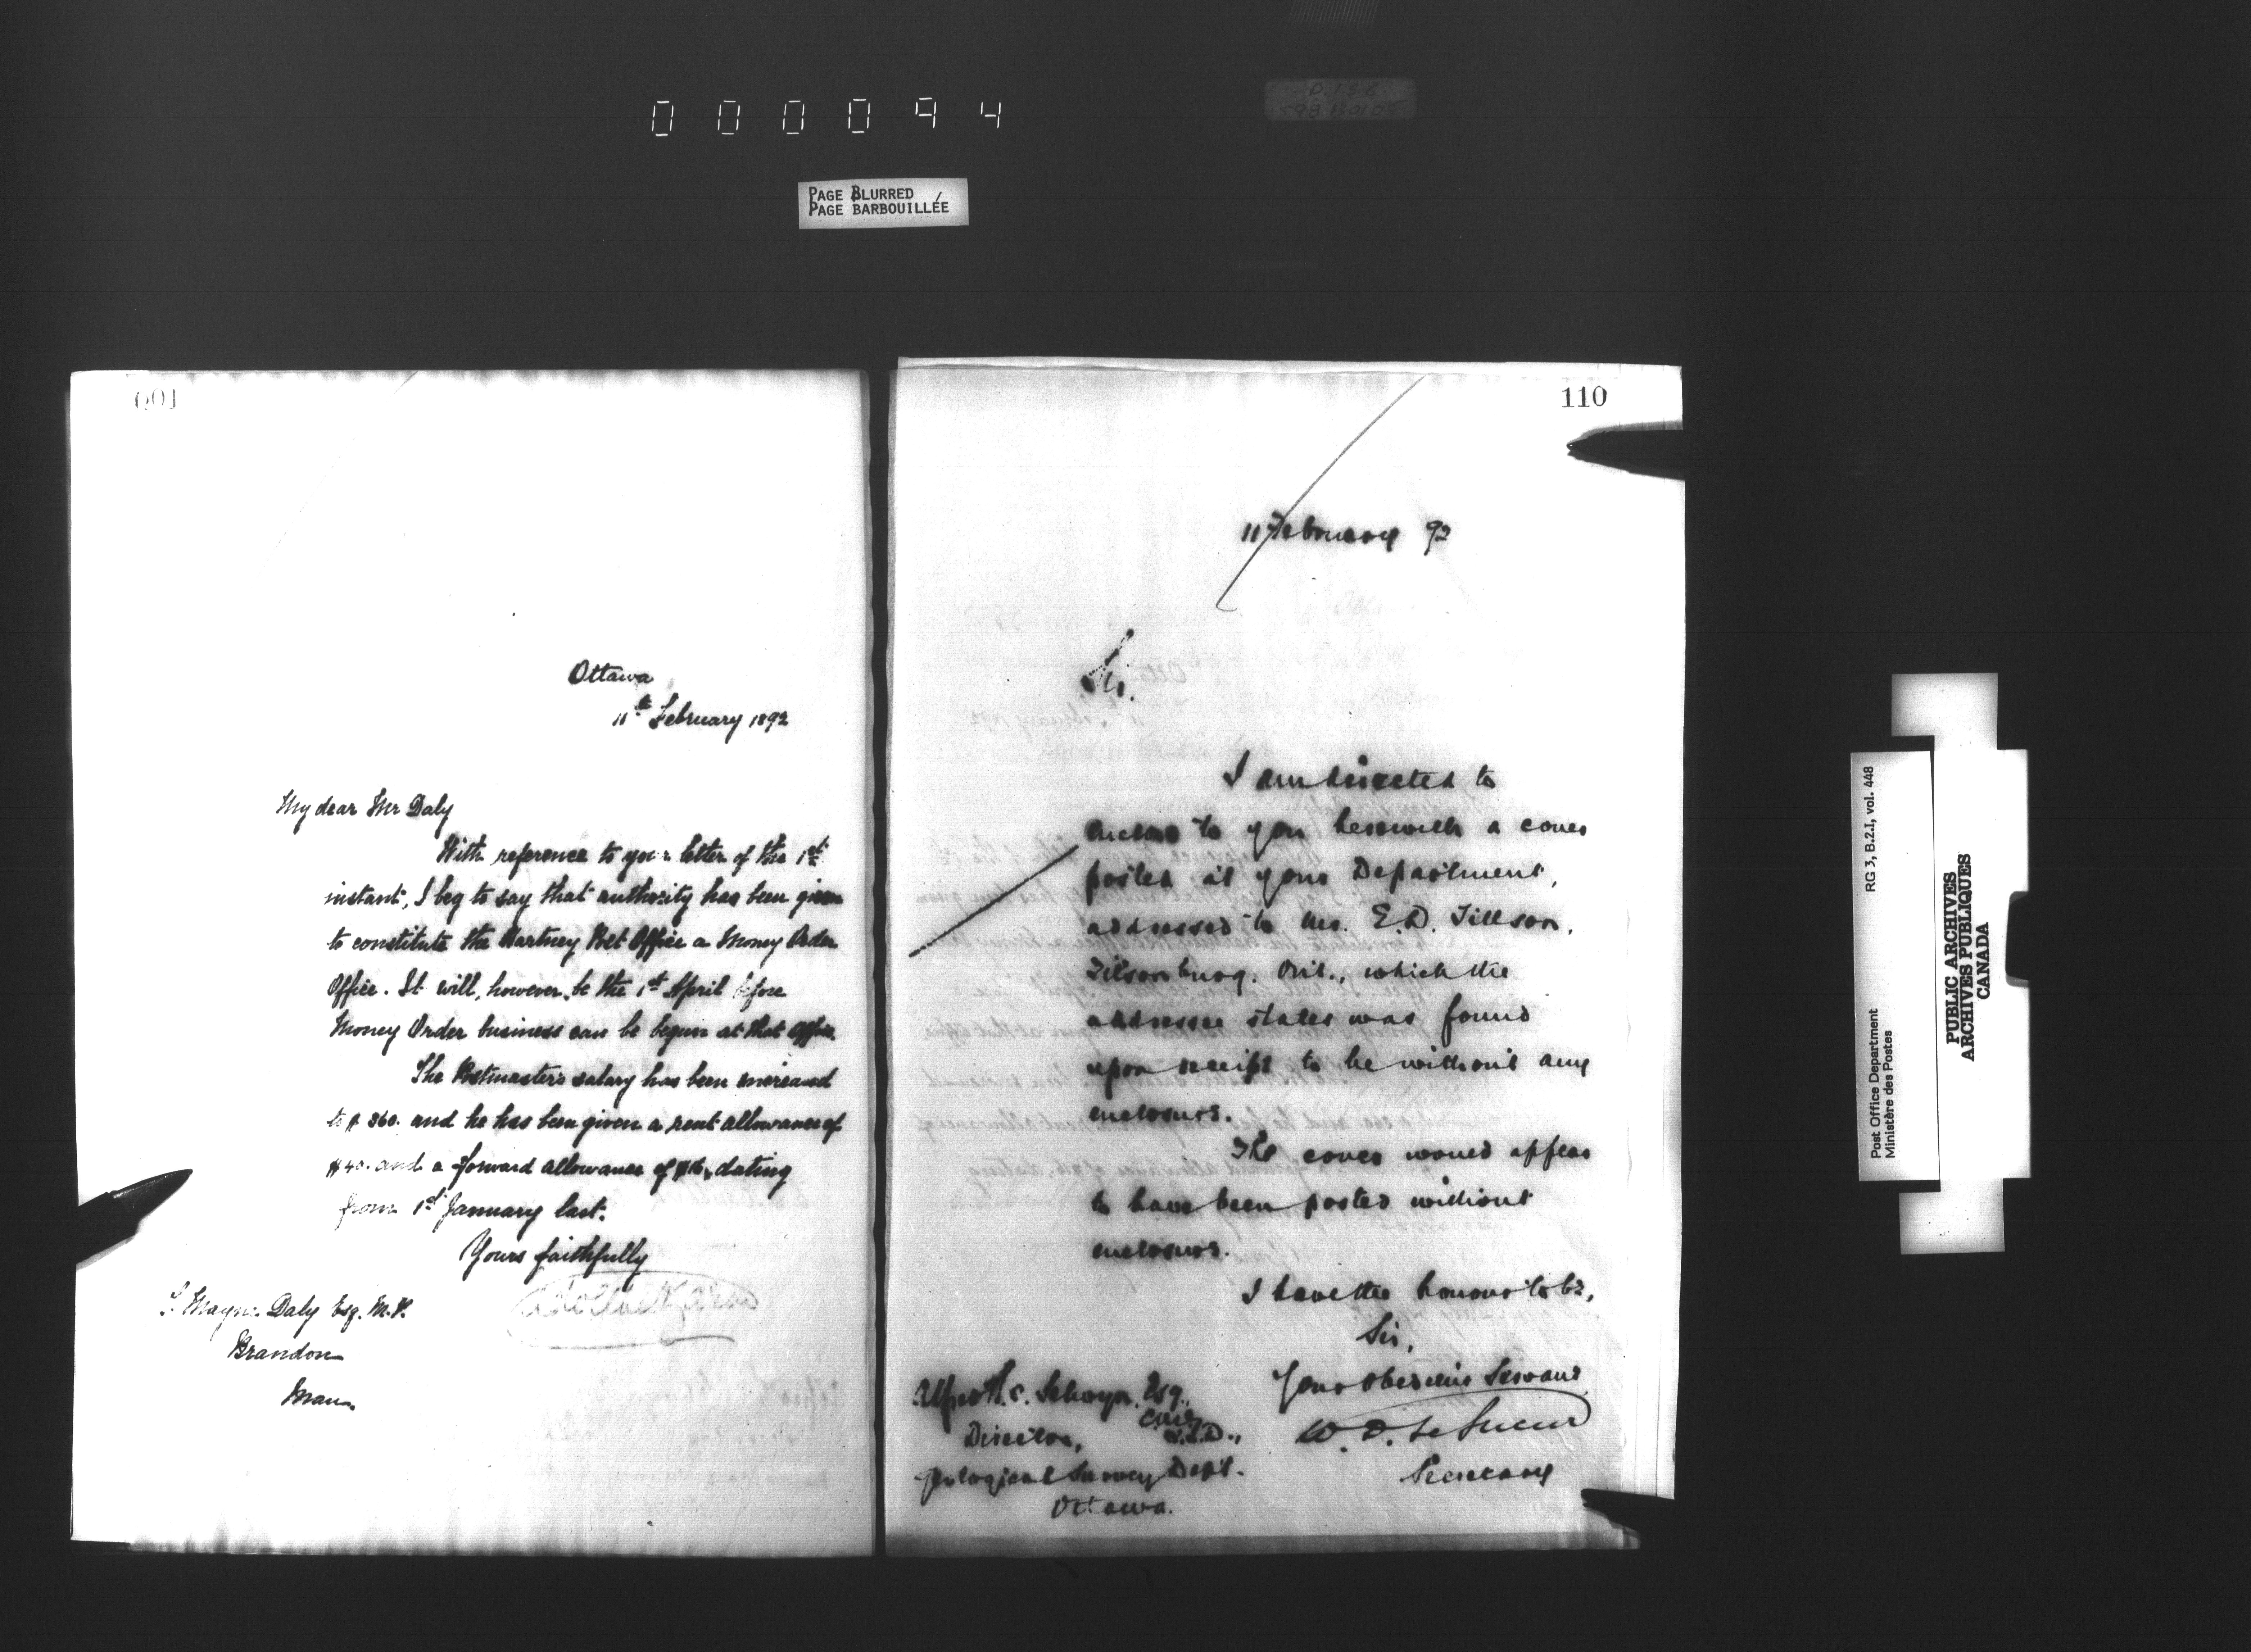 000094
PAGE BLURRED
PAGE BARBOUILLÉE
Ottawa
11th February 1892
My dear Mr Daly
With reference to your letter of the 1st
instant, I beg to say that authority has been given
to constitute the Hartney Post Office a Money Order
Office. It will, however, be the 1st April before
Money Order business can be begun at that office.
The Postmaster's salary has been increased
to $360. and he has been given a rent allowance of
$40. and a forward allowance of dating
from 1st January last.
Yours faithfully
T. Mayne Daly Esq. M.P.
Brandon
Man.
110
11 February 92
Sir.
I am directed to
enclose to you herewith a cover
posted at your Department,
addressed to Mr. E.D. Tillson,
Tilsonburg. Ont., which the
addressee states was found
upon receipt to be without any
enclosure.
The cover would appear
to have been posted without
enclosure.
I have the honour to be,
Sir,
Your obedient Servant
W. D. LeSueur
Secretary
Alfred R. C. Selwyn, Esq.,
C.M.G.
L.L.D.,
Director,
Geological Survey Dept.
Ottawa.
Post Office Department
Ministère des Postes
RG 3, B.2.I, vol. 448
PUBLIC ARCHIVES
ARCHIVES PUBLIQUES
CANADA